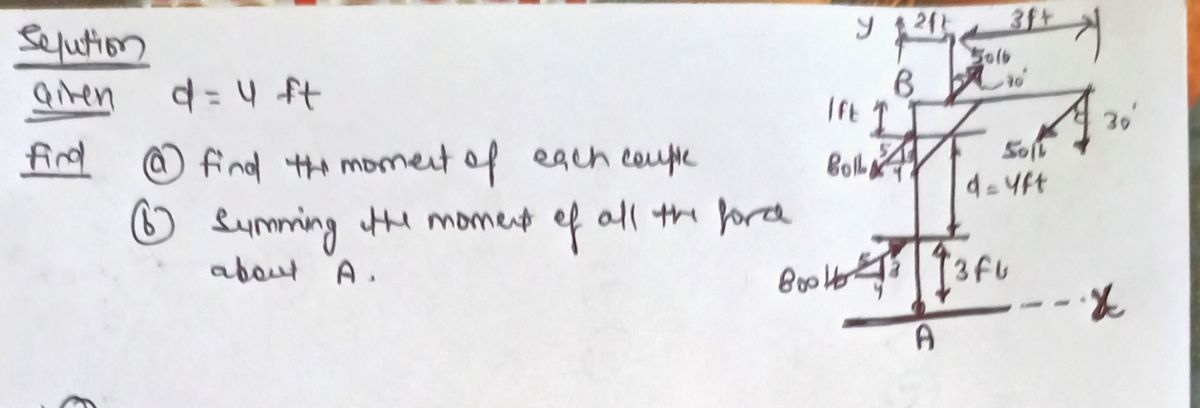 Solution
Given d = 4 ft
find (a) find the moment of each couple
(b) Summing the moment of all the force
about A.
y 2ft 3ft
50lb
30°
B
1ft
30°
50lb
80lb 5 4
d = 4ft
80lb 5 3
4
3ft
x
A